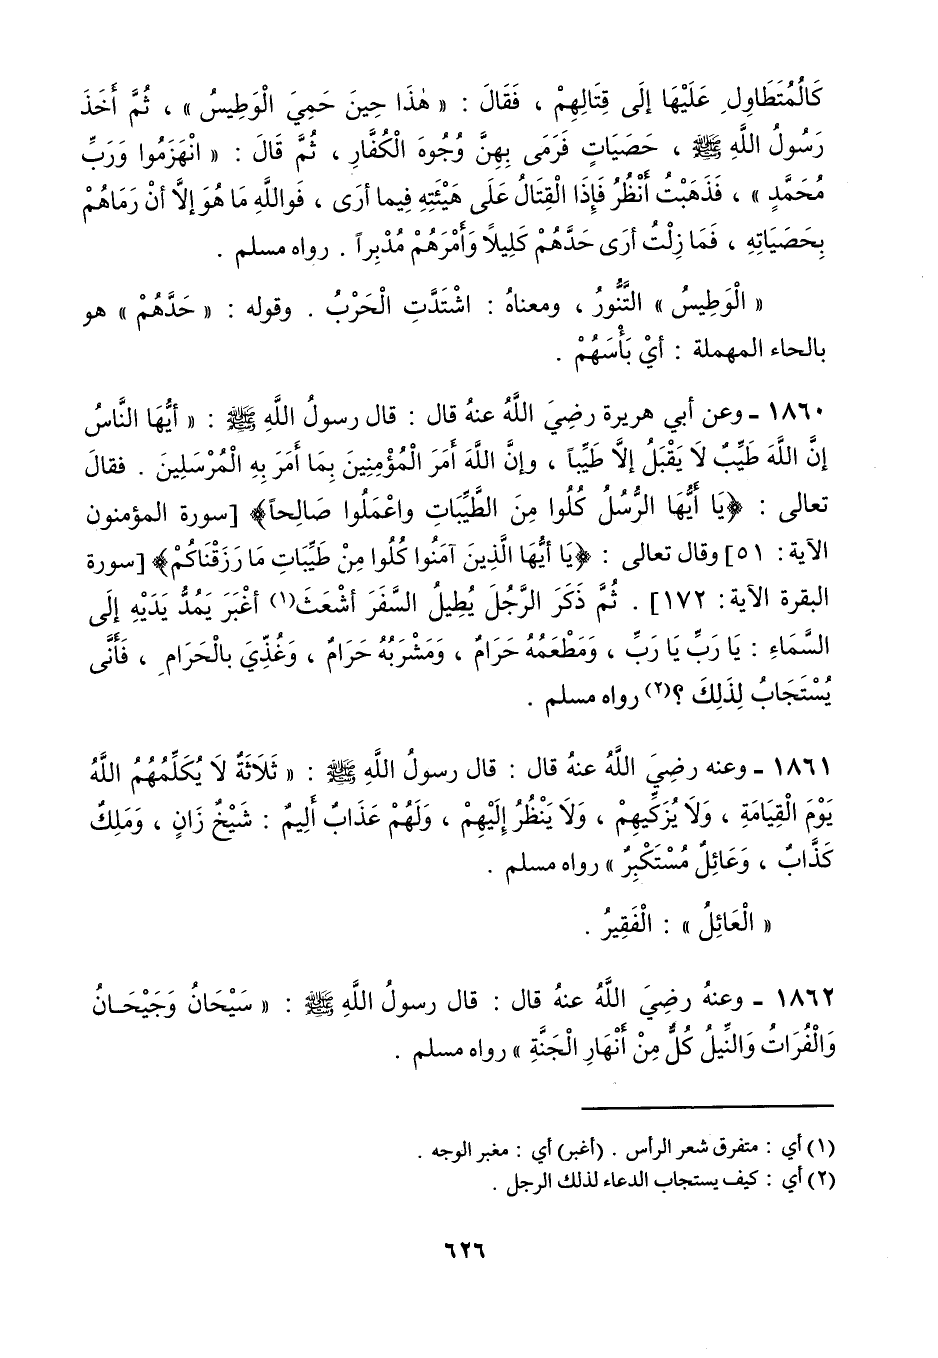 كَالْمُتَطَاوِلِ عَلَيْهَا إلَى قِتَالِهِمْ ، فَقَالَ : « هٰذَا حِينَ حَمِيَ الْوَطِيسُ » ، ثُمَّ أَخَذَ
رَسُولُ اللَّهِ ﷺ ، حَصَيَاتٍ فَرَمَى بِهِنَّ وُجُوهَ الْكُفَّارِ ، ثُمَّ قَالَ : « انْهَزَمُوا وَرَبِّ
مُحَمَّدٍ » ، فَذَهَبْتُ أَنْظُرُ فَإِذَا الْقِتَالُ عَلَى هَيْئَتِهِ فِيما أرَى ، فَواللَّهِ مَا هُوَ إلاَّ أنْ رَمَاهُمْ
بِحَصَيَاتِهِ ، فَمَا زِلْتُ أرَى حَدَّهُمْ كَلِيلاً وَأَمْرَهُمْ مُدْبِراً . رواه مسلم .
« الْوَطِيسُ » التَّنُّورُ ، ومعناهُ : اشْتَدَّتِ الْحَرْبُ . وقوله : « حَدَّهُمْ » هو
بالحاء المهملة : أيْ بَأْسَهُمْ .
١٨٦٠ ـ وعن أبي هريرة رضِيَ اللَّهُ عنهُ قال : قال رسولُ اللَّهِ ﷺ : « أيُّهَا النَّاسُ
إنَّ اللَّهَ طَيِّبٌ لَا يَقْبَلُ إلاَّ طَيِّباً ، وإنَّ اللَّهَ أمَرَ الْمُؤْمِنِينَ بِمَا أمَرَ بِهِ الْمُرْسَلِينَ . فقالَ
تعالى : ﴿يَا أَيُّهَا الرُّسُلُ كُلُوا مِنَ الطَّيِّبَاتِ واعْمَلُوا صَالِحاً﴾ [سورة المؤمنون
الآية: ٥١] وقال تعالى : ﴿يَا أيُّهَا الَّذِينَ آمَنُوا كُلُوا مِنْ طَيِّبَاتِ مَا رَزَقْنَاكُمْ﴾ [سورة
البقرة الآية: ١٧٢] . ثُمَّ ذَكَرَ الرَّجُلَ يُطِيلُ السَّفَرَ أشْعَثَ(١) أغْبَرَ يَمُدُّ يَدَيْهِ إلَى
السَّمَاءِ : يَا رَبِّ يَا رَبِّ ، وَمَطْعَمُهُ حَرَامٌ ، وَمَشْرَبُهُ حَرَامٌ ، وَغُذِّيَ بالْحَرَامِ ، فَأَنَّى
يُسْتَجَابُ لِذَلِكَ ؟(٢) رواه مسلم .
١٨٦١ ـ وعنه رضِيَ اللَّهُ عنهُ قال : قال رسولُ اللَّهِ ﷺ : « ثَلَاثَةٌ لَا يُكَلِّمُهُمُ اللَّهُ
يَوْمَ الْقِيَامَةِ ، وَلَا يُزَكِّيهِمْ ، وَلَا يَنْظُرُ إلَيْهِمْ ، وَلَهُمْ عَذَابٌ أَلِيمٌ : شَيْخٌ زَانٍ ، وَمَلِكٌ
كَذَّابٌ ، وَعَائِلٌ مُسْتَكْبِرٌ » رواه مسلم .
« الْعَائِلُ » : الْفَقِيرُ .
١٨٦٢ ـ وعنهُ رضِيَ اللَّهُ عنهُ قال : قال رسولُ اللَّهِ ﷺ : « سَيْحَانُ وَجَيْحَـانُ
وَالْفُرَاتُ وَالنِّيلُ كُلٌّ مِنْ أَنْهَارِ الْجَنَّةِ » رواه مسلم .
(١) أي : متفرق شعر الرأس . (أغبر) أي : مغبر الوجه .
(٢) أي : كيف يستجاب الدعاء لذلك الرجل .
٦٢٦